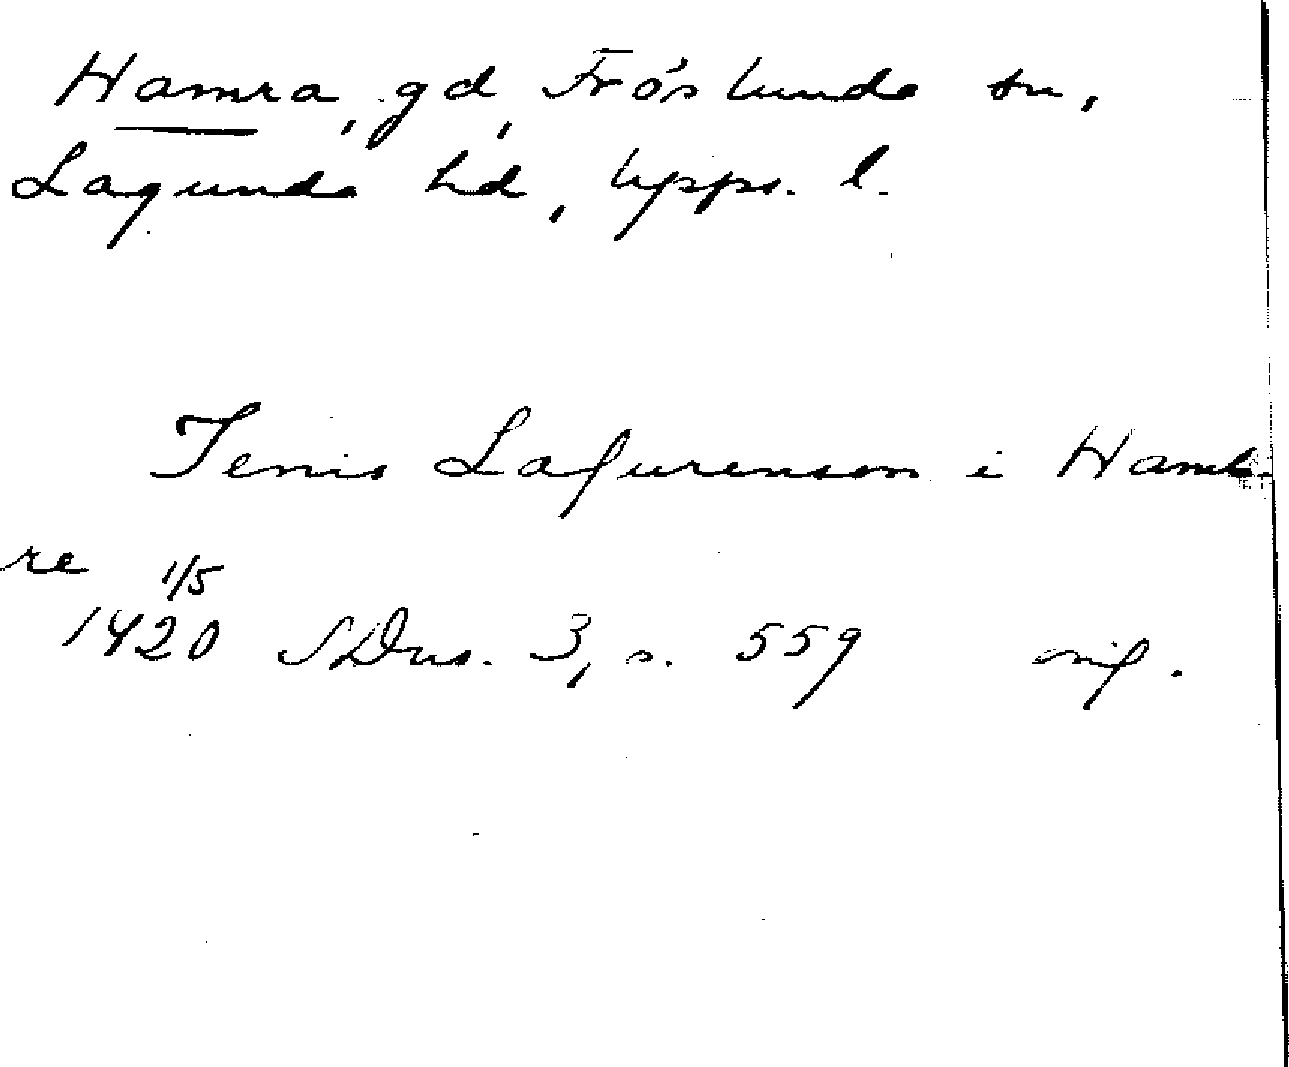 Hamra, gd, Fröslunda sn,
Lagunda hd, Upps. l.
Jenis Lafurensson i Hamb-
re 1/5
1420 SDns. 3, s. 559 orig.